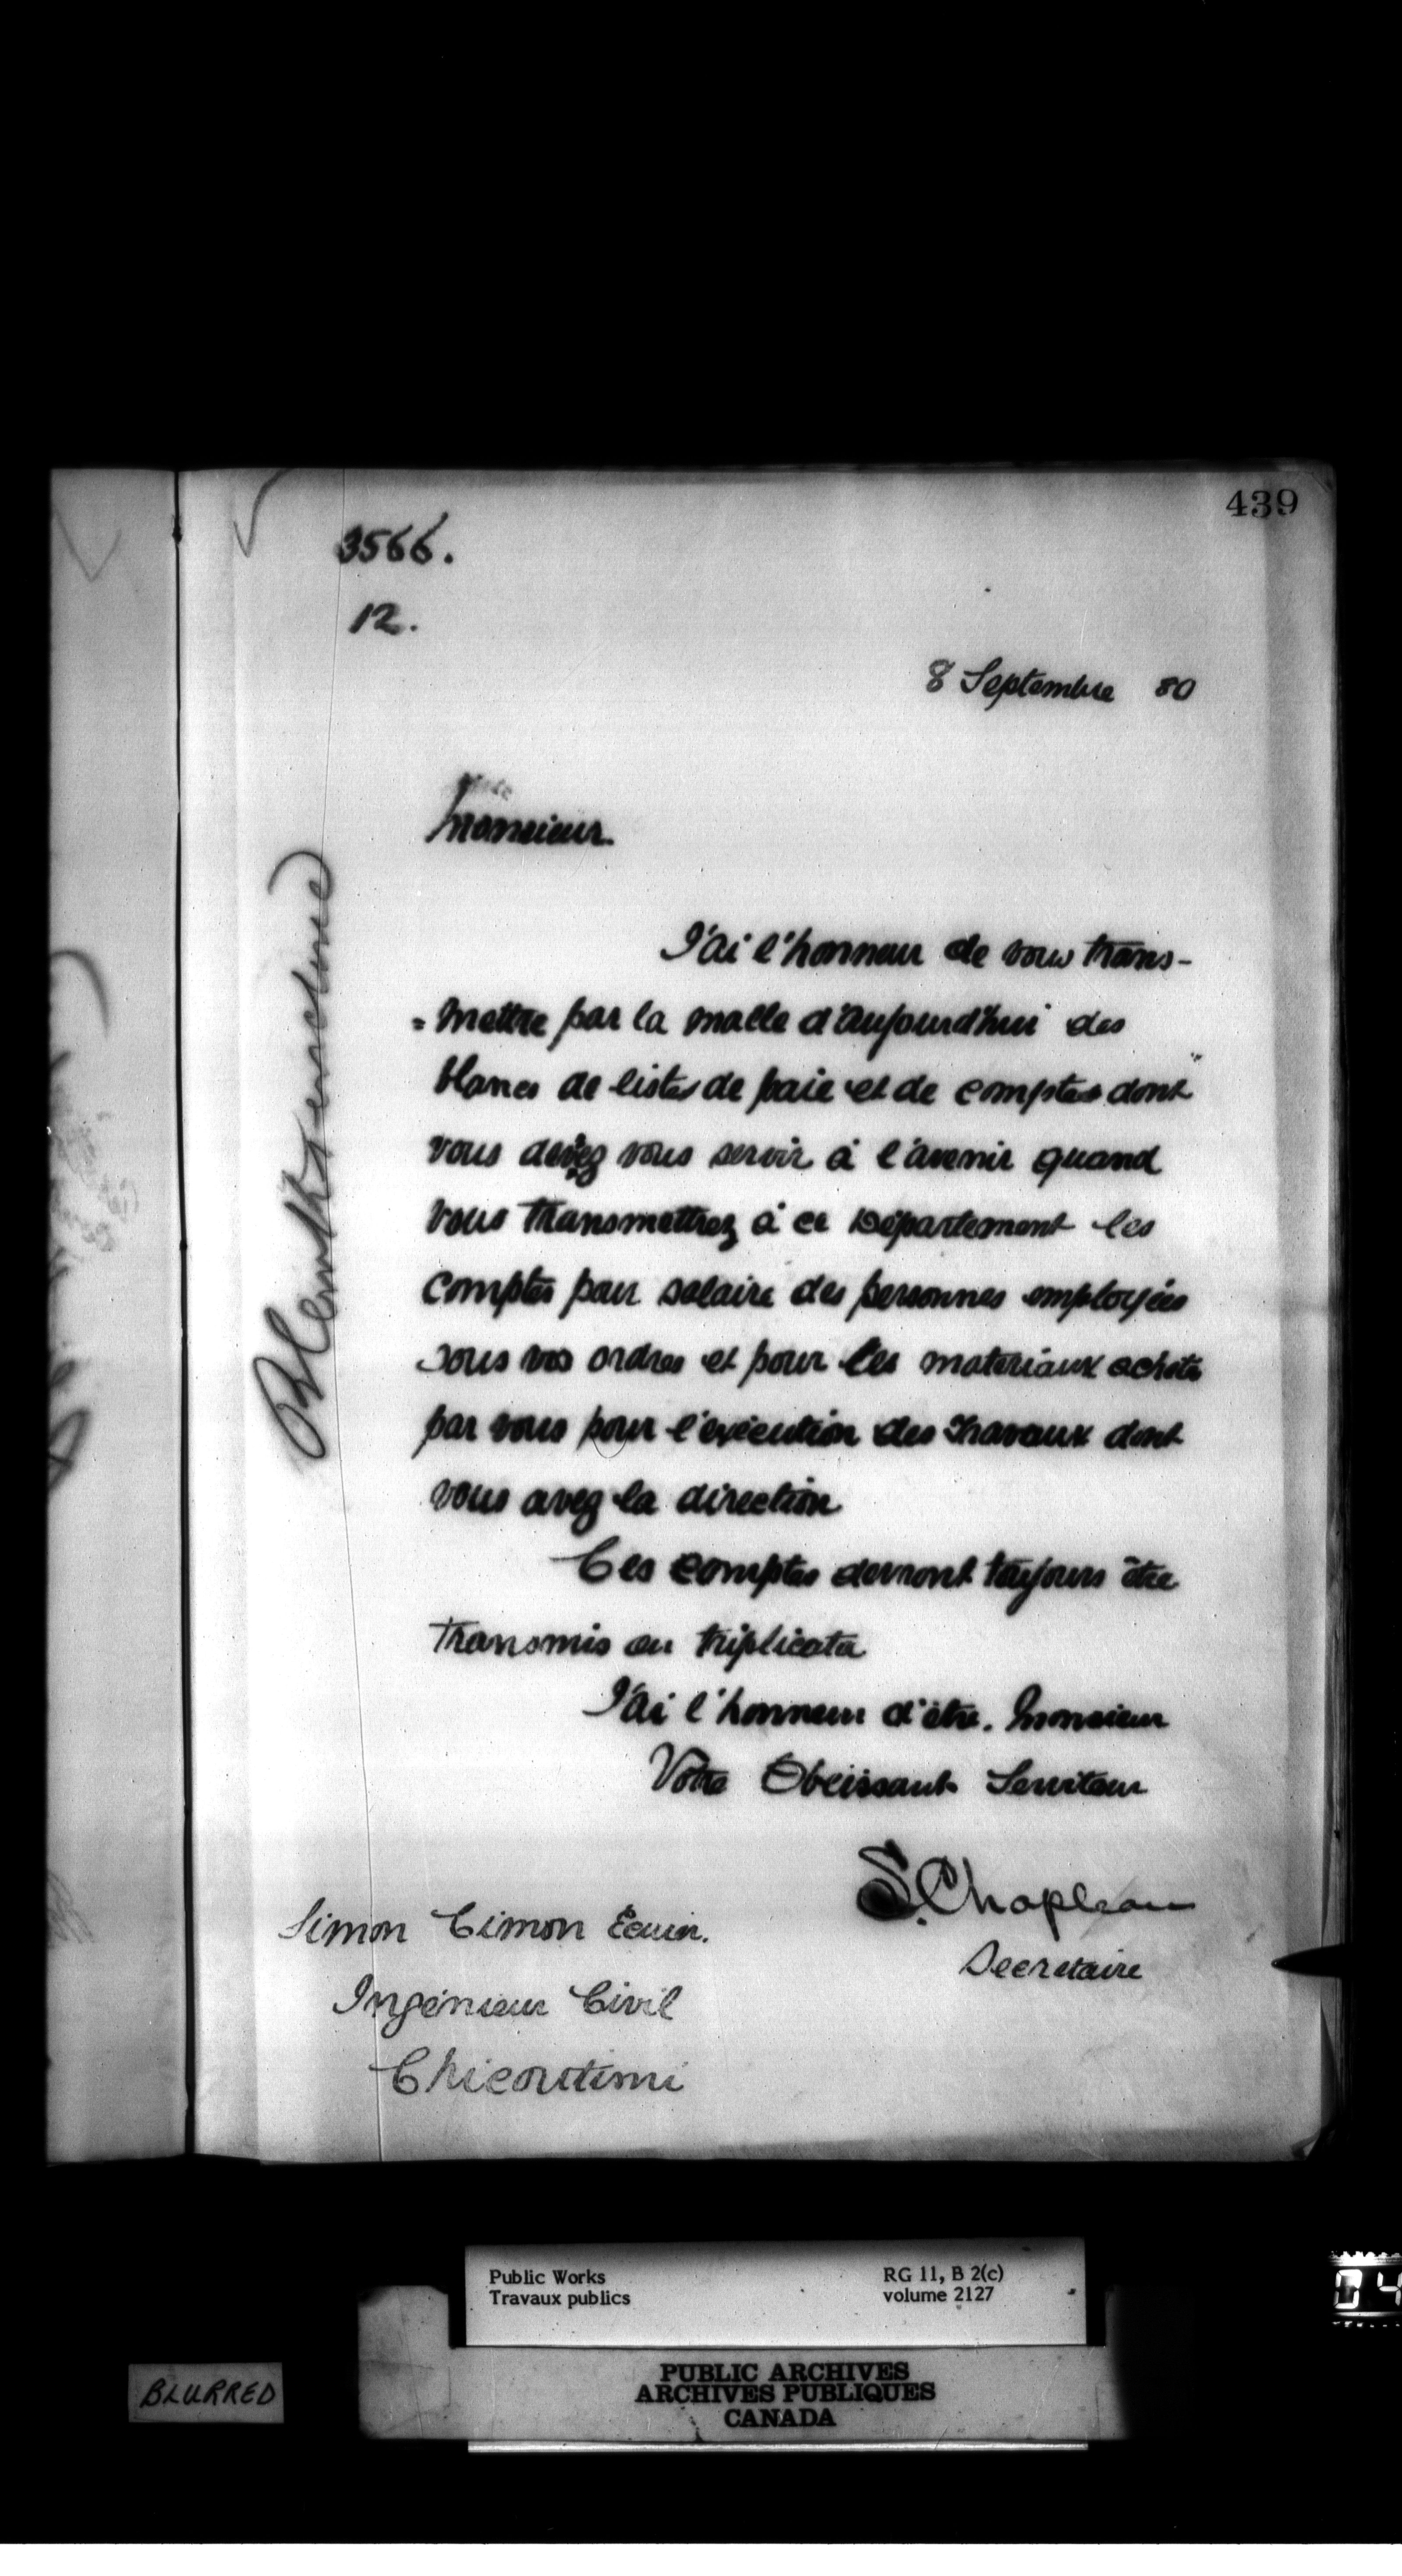 439
3566.
12.
8 Septembre 80
Monsieur.
J'ai l'honneur de vous trans-
=mettre par la malle d'aujourd'hui des
blancs de listes de paie et de comptes dont
vous devez vous servir à l'avenir quand
vous transmettrez à ce Département les
comptes pour salaire des personnes employées
sous vos ordres et pour les materiaux achetés
par vous pour l'exécution des travaux dont
vous avez la direction
Ces comptes devront toujours être
transmis en triplicata
J'ai l'honneur d'être. Monsieur
Votre Obeissant Serviteur
S. Chapleau
Secretaire
Simon Cimon Ecuier.
Ingénieur Civil
Chicoutimi
Public Works
Travaux publics
RG 11, B 2(c)
volume 2127
PUBLIC ARCHIVES
ARCHIVES PUBLIQUES
CANADA
BLURRED
04